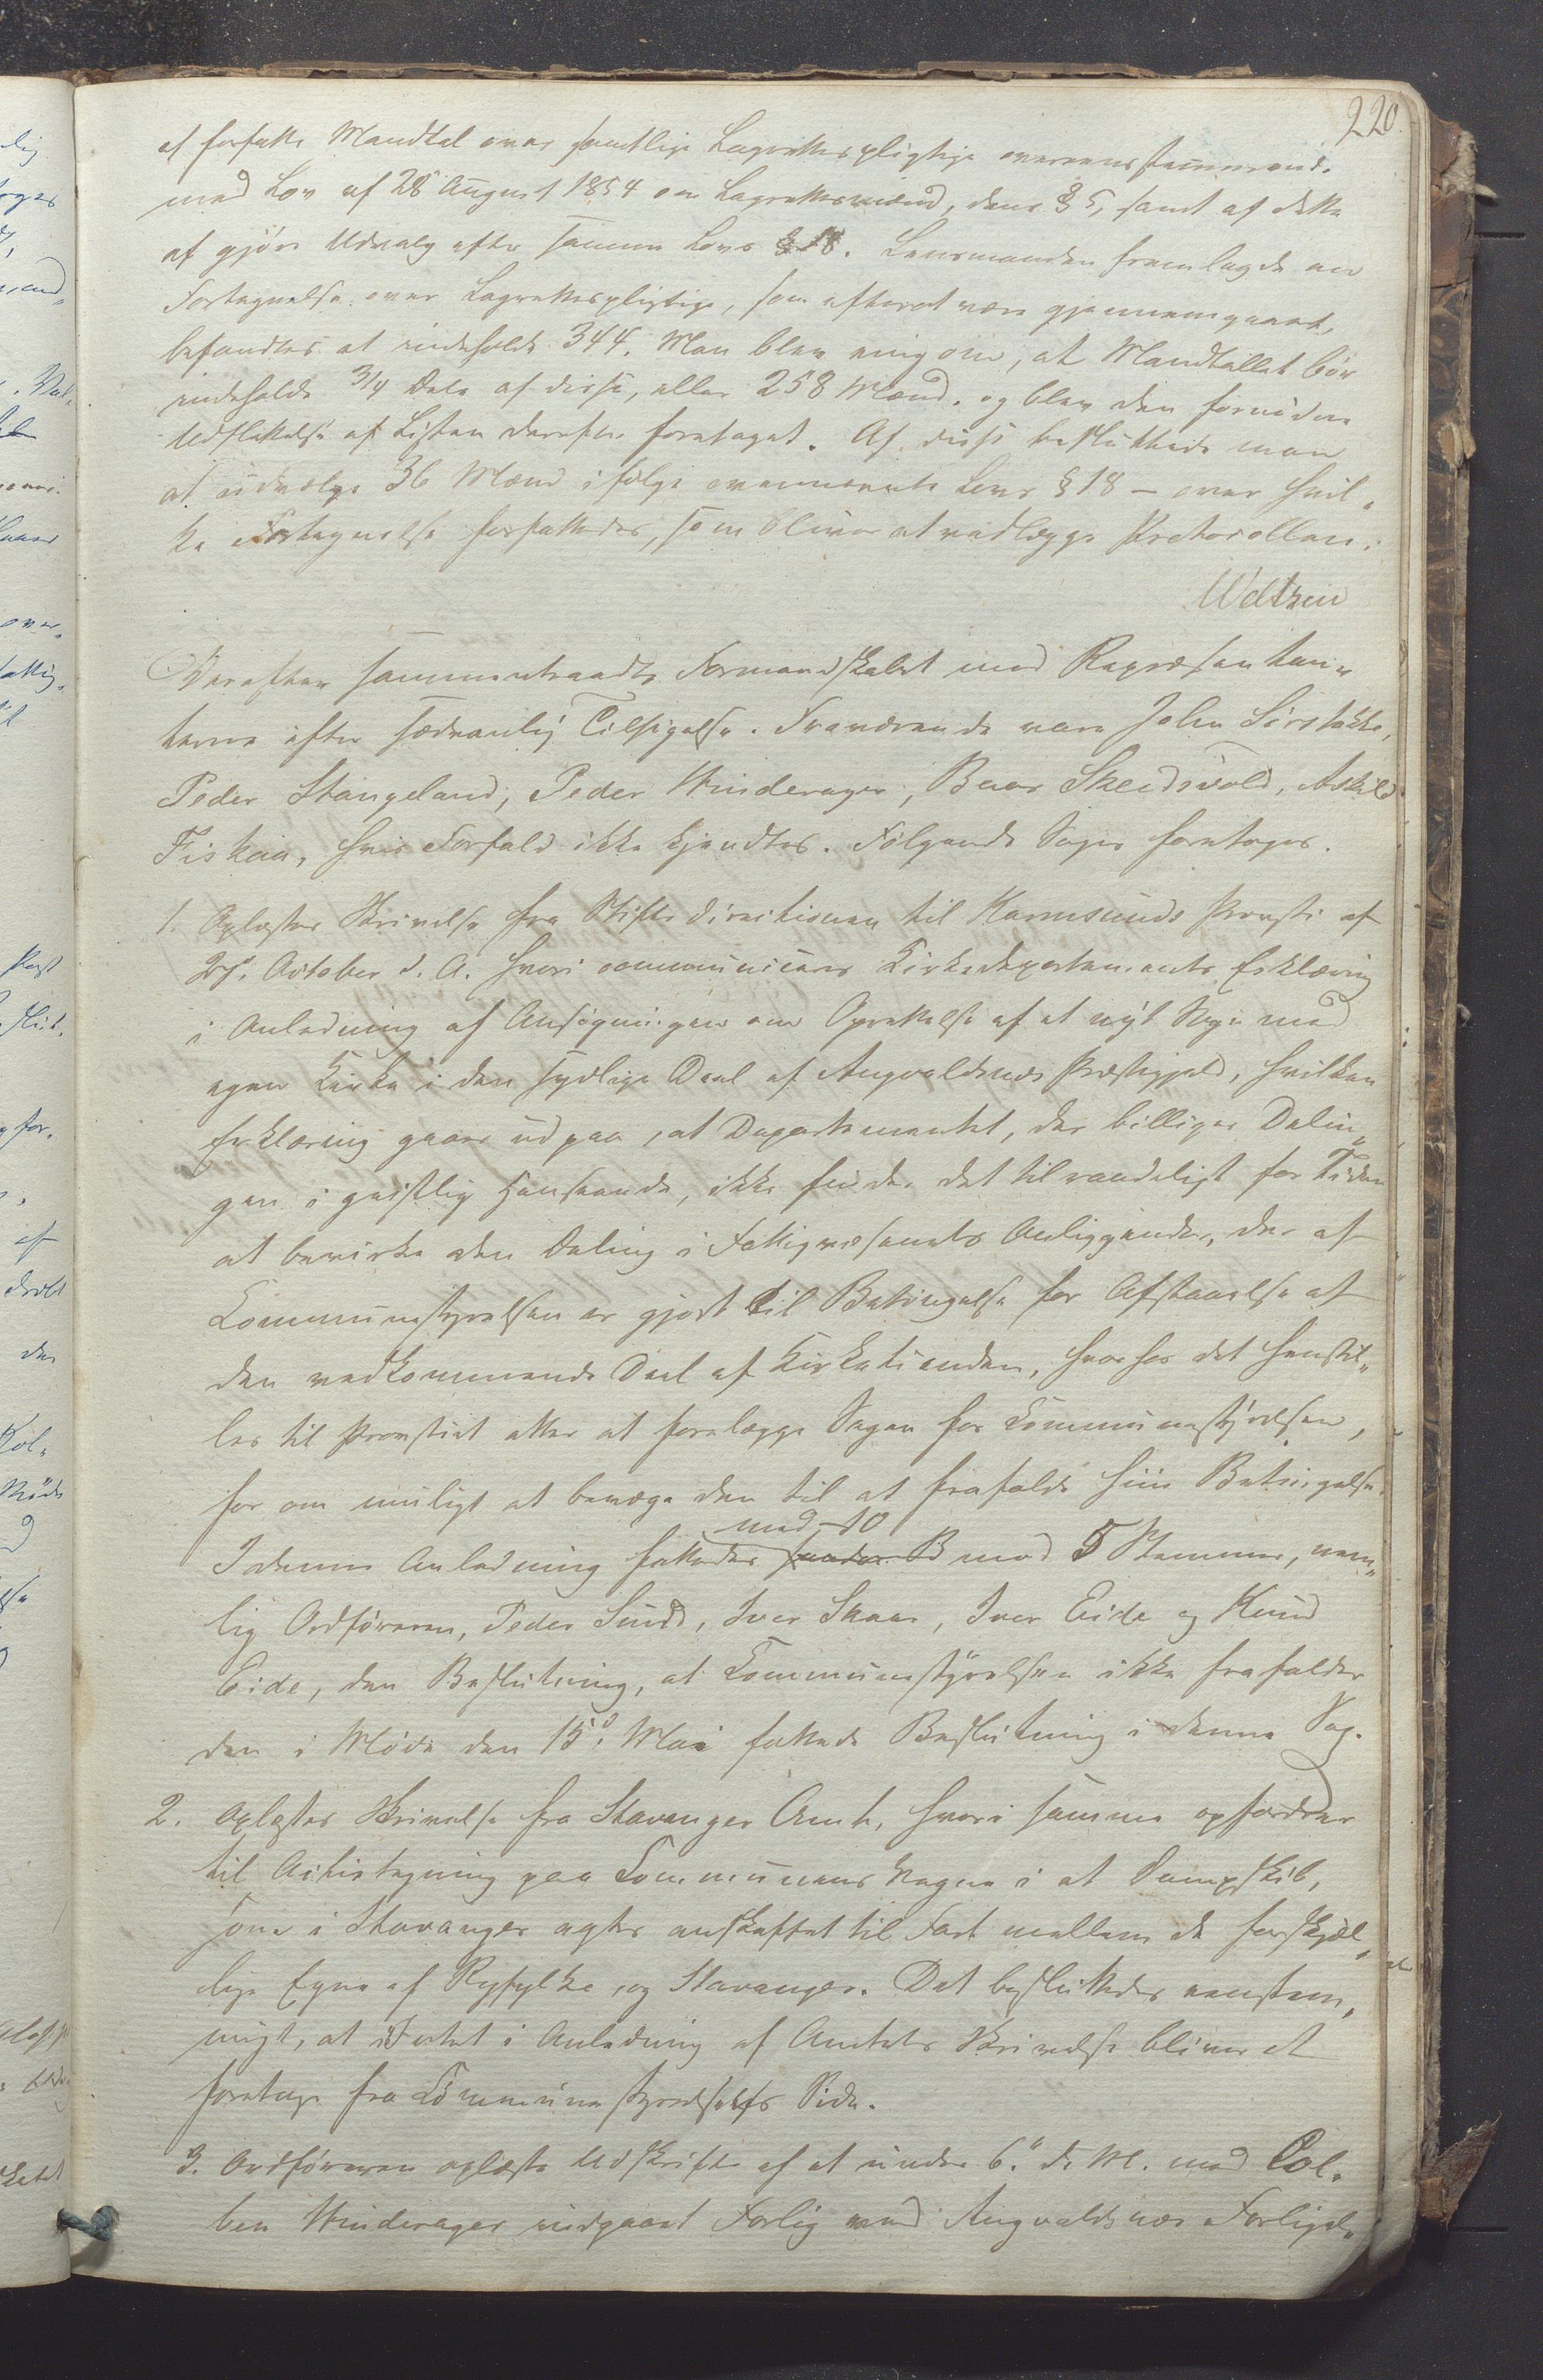 220.
at forfatte Mandtal over samtlige Lagrettespligtige overeensstemmende
med Lov af 28 August 1854 om Lagrettesmænd, dens § 5, samt af dette
at gjöre Udvalg efter samme Lovs § 18. Lensmanden fremlagde en
Fortegnelse over Lagrettespligtige, som efterat være gjennemgaaet,
befandtes at indeholde 344. Man blev enig om, at Mandtallet bör
indeholde 3/4 Dele af disse, eller 258 Mænd. og blev den fornödne
Udslettelse af Listen derefter foretaget. Af disse besluttede man
at udvælge 36 Mænd i fölge ovennævnte Lovs § 18 – over hvil„
ke Fortegnelse forfattedes, som bliver at vedlægge Protocollen.
Weltzin
Derefter sammentraadte Formandskabet med Repræsentan„
terne efter sædvanlig Tilsigelse. Fraværende vare John Sörstokke,
Peder Stangeland, Peder Hinderager, Baar Skeidsvold, Askild
Fiskaa, hvis Forfald ikke kjendtes. Fölgende Sager foretoges.
1. Oplæstes Skrivelse fra Stiftsdirectionen til Karmsunds Provsti af
27. October d. A. hvori communiceres Kirkedepartementets Erklæring
i Anledning af Ansögningen om Oprettelse af et nyt Sogn med
egen Kirke i den sydlige Deel af Augvaldsnæs Præstegjeld, hvilken
Erklæring gaaer ud paa, at Departementet, der billiger Delin„
gen i geistlig Henseende, ikke finder det tilraadeligt for Tiden
at bevirke den Deling i Fattigvæsenets Anliggender, der af
Communestyrelsen er gjort til Betingelse for Afstaaelse af
den vedkommende Deel af Kirketienden, hvorfor det henstil„
les til Provstiet atter at forelægge Sagen for Communestyrelsen,
for om muligt at bevæge den til at frafalde hiin Betingelse.
med 10
I denne Anledning fattedes mod 5 Stemmer, nem„
lig Ordföreren, Peder Sund, Iver Skaar, Iver Eide og Knud
Eide, den Beslutning, at Communestyrelsen ikke frafalder
den i Möde den 15d. Mai fattede Beslutning i denne Sag.
2. Oplæstes Skrivelse fra Stavanger Amt, hvori samme opfordrer
til Actietegning paa Communens Vegne i et Dampskib,
som i Stavanger agtes anskaffet til Fart mellem de forskjel„
lige Egne af Ryfylke og Stavanger. Det besluttedes eenstem„
migt, at Intet i Anledning af Amtets Skrivelse bliver at
foretage fra Communestyrelsens Side.
3. Ordföreren oplæste Udskrift af et under 6. d. M. med Col„
ben Hinderager indgaaet Forlig ved Augvaldsnæs Forligel„